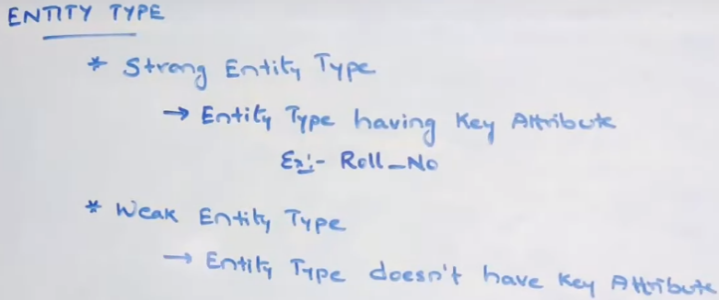 ENTITY TYPE
* Strong Entity Type
→ Entity Type having Key Attribute
Ex:- Roll_No
* Weak Entity Type
→ Entity Type doesn't have Key Attribute